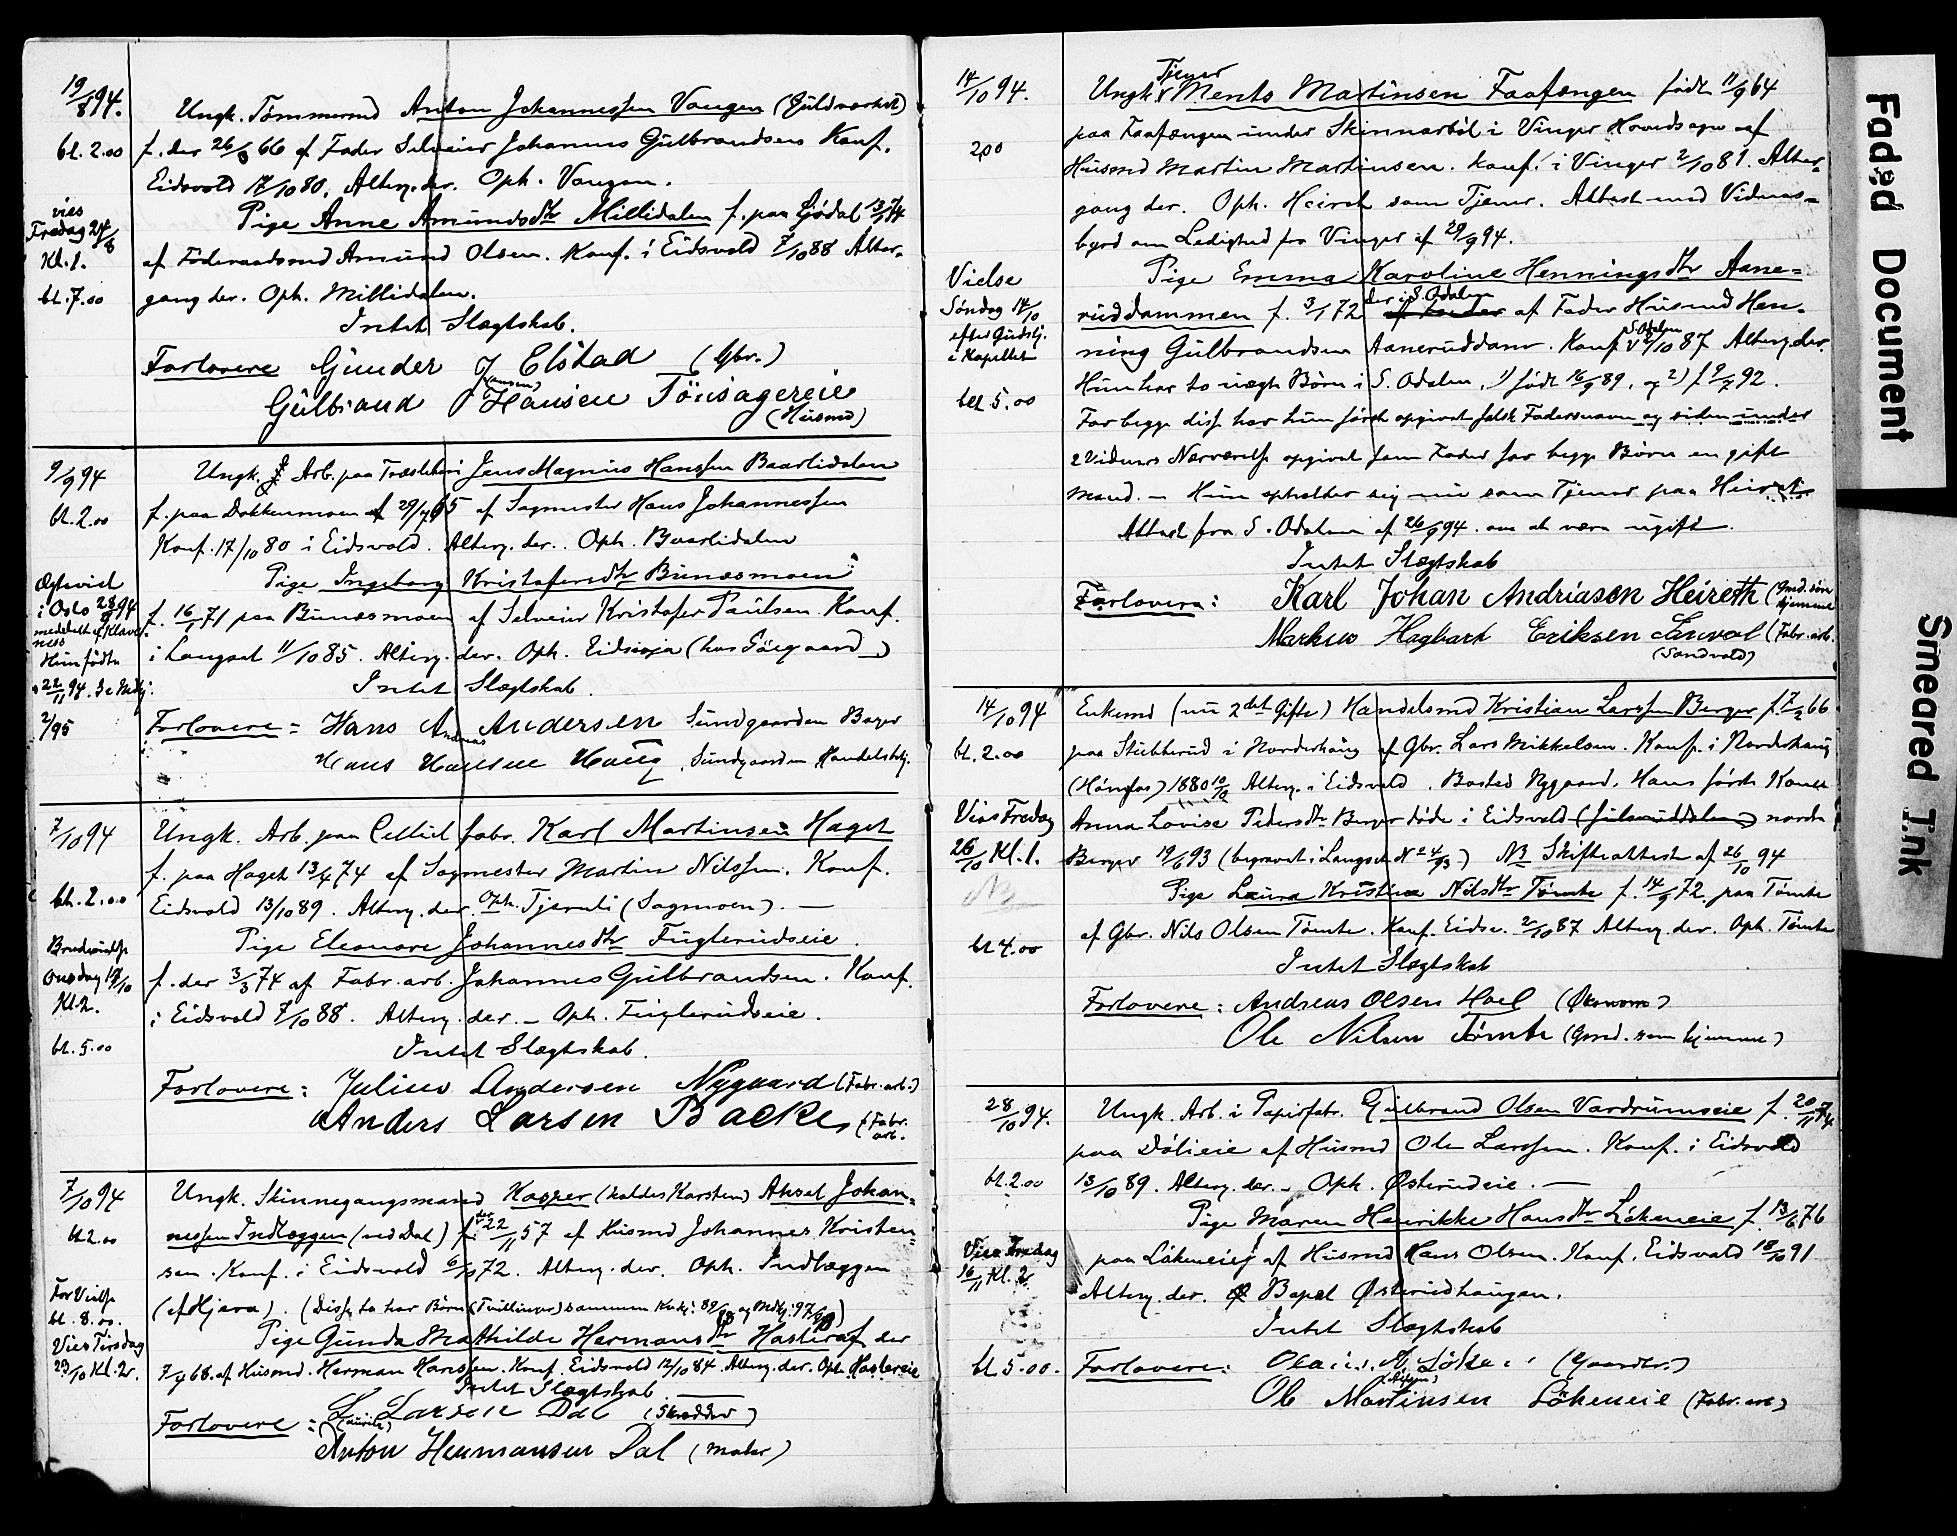 19/8 94.
Ungk. Tømmermd Anton Johannessen Vangen (Guldverket)
bt. 2.00
f. der 26/8 66 af Fader Selveier Johannes Gulbrandsen Konf.
Eidsvold 17/10 80. Alterg. der. Oph. Vangen.
vies
Fredag 24/8
Kl. 1.
bt. 7.00
Pige Anne Amundsdtr Millidalen f. paa Gjødal 13/7 74
af Føderaadsmd Amund Olsen. Konf. i Eidsvold 7/10 88 Alter-
gang der. Oph. Millidalen.
Intet Slægtskab.
Forlovere Gunder J Elstad (Gbr.)
(Jansen)
Gulbrand Hansen Tönsagereie
(Husmd)
9/9 94
bt. 2.00
Ungk. Arb. paa Træsliberi Jens Magnus Hanssen Baarlidalen
f. paa Dokkenmoen 29/4 65 af Sagmester Hans Johannessen
Konf. 17/10 80 i Eidsvold. Alterg. der. Oph. Baarlidalen
Pige Ingeborg Kristofersdtr Bunæsmoen
Ægteviet
i Oslo 23/9 94
meddelt af Klave-
ness
Hun fødte
22/11 94. Se Mdkj.
2/95
f. 16/1 71 paa Bunæsmoen af Selveier Kristofer Paulsen. Konf.
i Langset 11/10 85. Alterg. der. Oph. Eidsvoja (hos Göegaard)
Intet Slægtskab.
Forlovere = Hans A Andersen Sundgaarden Bager
Andreas
Hans Hansen Haug, Sundgaarden Handelsbtj.
7/10 94
bt. 2.00
Ungk. Arb. paa Cellul. fabr. Karl Martinsen Haget
f. paa Haget 13/4 74 af Sagmester Martin Nilssen. Konf.
Eidsvold 13/10 89. Alterg. der. Oph. Tjernli (Sagmoen). —
Pige Eleonore Johannesdtr Fuglerudseie.
Brudevielse
Onsdag 17/10
Kl. 2.
bt. 5.00
f. der 3/3 74 af Fabr. arb. Johannes Gulbrandsen. Konf.
i Eidsvold 7/10 88. Alterg. der. – Oph. Fuglerudseie.
Intet Slægtskab.
Forlovere: Julius Andersen Nygaard (Fabr. arb.)
Anders Larsen Bakke, (Fabr. arb.
7/10 94
bt. 2.00
Ungk. Skinnegangsmand Kasper (kaldes Karsten) Aksel Johan-
nessen Indlæggen (ved Dal) f. der 22/11 57 af Husmd Johannes Kristen-
sen. Konf. i Eidsvold 6/10 72. Alterg. der. Oph. Indlæggen
(af Hjera). (Disse to har Børn (Tvillinger) sammen
For Vielse
bt. 8.00.
Vies Tirsdag
23/10 Kl. 2.
Pige Gunda Mathilde Hermansdtr Hasleraf der
af Husmd. Herman Hanssen. Konf. Eidsvold 12/10 84. Alterg. der. Oph. Haslereie
Intet Slægtskab.
Forlovere: L. Larsen Dal (Skrædder)
(Laurits)
Anton Hermansen Dal (Maler)
14/10 94.
2.00
Tjener
Ungk. Ments Martinsen Faafængen født 11/9 64
paa Faafængen under Skinnarböl i Vinger Hovedsogn af
Husmd Martin Martinsen. Konf. i Vinger 2/10 81. Alter-
gang der. Oph. Heiret som Tjener. Attest med Vidnes-
byrd om Ledighed fra Vinger af 29/9 94.
Pige Emma Karoline Henningsdtr Aane-
Vielse
Søndag 14/10
efter Gudstj.
i Kapellet
bt 5.00
der i S. Odalen
ruddammen f. 3/1 72 af Fader Husmd Hen-
S. Odalen
ning Gulbrandsen Aaneruddam. Konf. 2/10 87 Alterg. der.
Hun har to uægte Børn i S. Odalen, 1) født 16/9 89, og 2) f. 2/2 92.
For begge disse har hun først opgivet falsk Fadersnavn og siden under
2 Vidners Nærværelse opgivet som Fader for begge Børn en gift
Mand. – Hun opholder sig nu som Tjener paa Heiret.
Attest fra S. Odalen af 26/9 94. om at være ugift.
Intet Slægtskab
Forlovere: Karl Johan Andriasen Heireth (Gmd. søn hjemme
Markus Hagbart Eriksen Sanvol (Fabr. arb.
(Sandvold)
14/10 94
bt. 2.00
Enkemd (nu 2det Gifte) Handelsmd Kristian Larssen Berger f. 7/2 66
paa Stubberud i Norderhaug af Gbr. Lars Mikkelsen. Konf. i Norderhaug
(Hønefos) 1880 10/10 Alterg. i Eidsvold. Bosted Nygaard. Hans første Kone
Vies Fredag
26/10 Kl. 1.
NB
bt 4.00
Anna Lovise Pedersdtr Berger døde i Eidsvold (Julsruddalen) nordre
Berger 19/6 93 (begravet i Langset No 4/93) NB Skifteattest af 26/10 94
Pige Laura Kristine Nilsdtr Tømte f. 14/9 72 paa Tømte
af Gbr. Nils Olsen Tømte. Konf. Eidsv. 2/10 87 Alterg. der. Oph. Tømte
Intet Slægtskab
Forlovere: Andreas Olsen Hoel (Økonom)
Ole Nilsen Tömte (Gmd. søn hjemme)
28/10 94.
bt. 2.00
Ungk. Arb. i Papirfabr. Gulbrand Olsen Vardrumseie f. 20/11 74
paa Dölieie af Husmd Ole Larssen. Konf. i Eidsvold
13/10 89. Alterg. der. – Oph. Østerudeie. —
Pige Maren Henrikke Hansdtr Lökeneie f. 13/6 76
Vies Fredag
16/11 Kl. 2.
bt 5.00.
paa Lökeneiej af Husmd Hans Olsen. Konf. Eidsvold 18/10 91
Alterg. der. Bopæl Østerudhaugen.
Intet Slægtskab
Forlovere: (Gaardbr.)
Ole Martinsen Lökeneie (Fabr. arb)
Faded Document
Smeared Ink